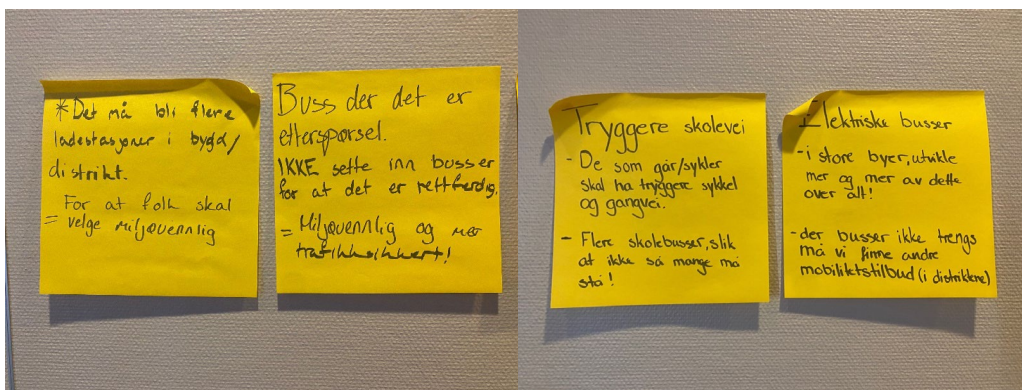 * Det må bli flere
ladestasjoner i bygd/
distrikt.
For at folk skal
= velge miljøvennlig
Buss der det er
etterspørsel.
IKKE sette inn busser
for at det er rettferdig.
= Miljøvennlig og mer
trafikksikkert!
Tryggere skolevei
- De som går/sykler
skal ha tryggere sykkel
og gangvei.
- Flere skolebusser, slik
at ikke så mange må
stå!
Elektriske busser
- i store byer, utvikle
mer og mer av dette
over alt!
- der busser ikke trengs
må vi finne andre
mobilitetstilbud (i distriktene)